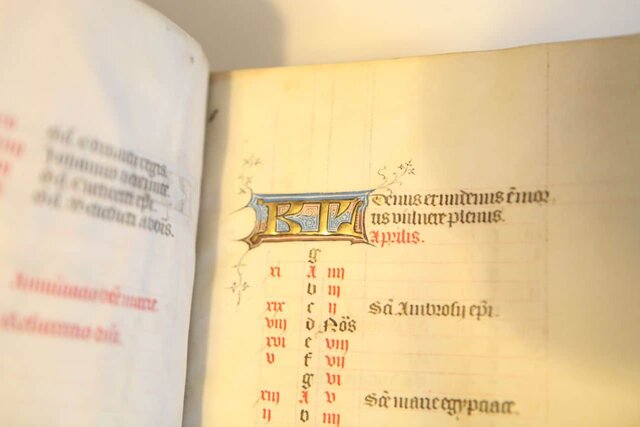 Sci. Edwardi regis.
Sci. Cuthberti epi.
Sci. Benedicti abbis.
KL Denus et undenus e mor
tis vulnere plenus.
Aprilis.
g
xi A iiii
b iii
xix c ii Sci Ambrosij epi.
viii d Nos
xvi e viii
v f vii
g vi
xiii A v Sce marie egypciace.
ii b iiii